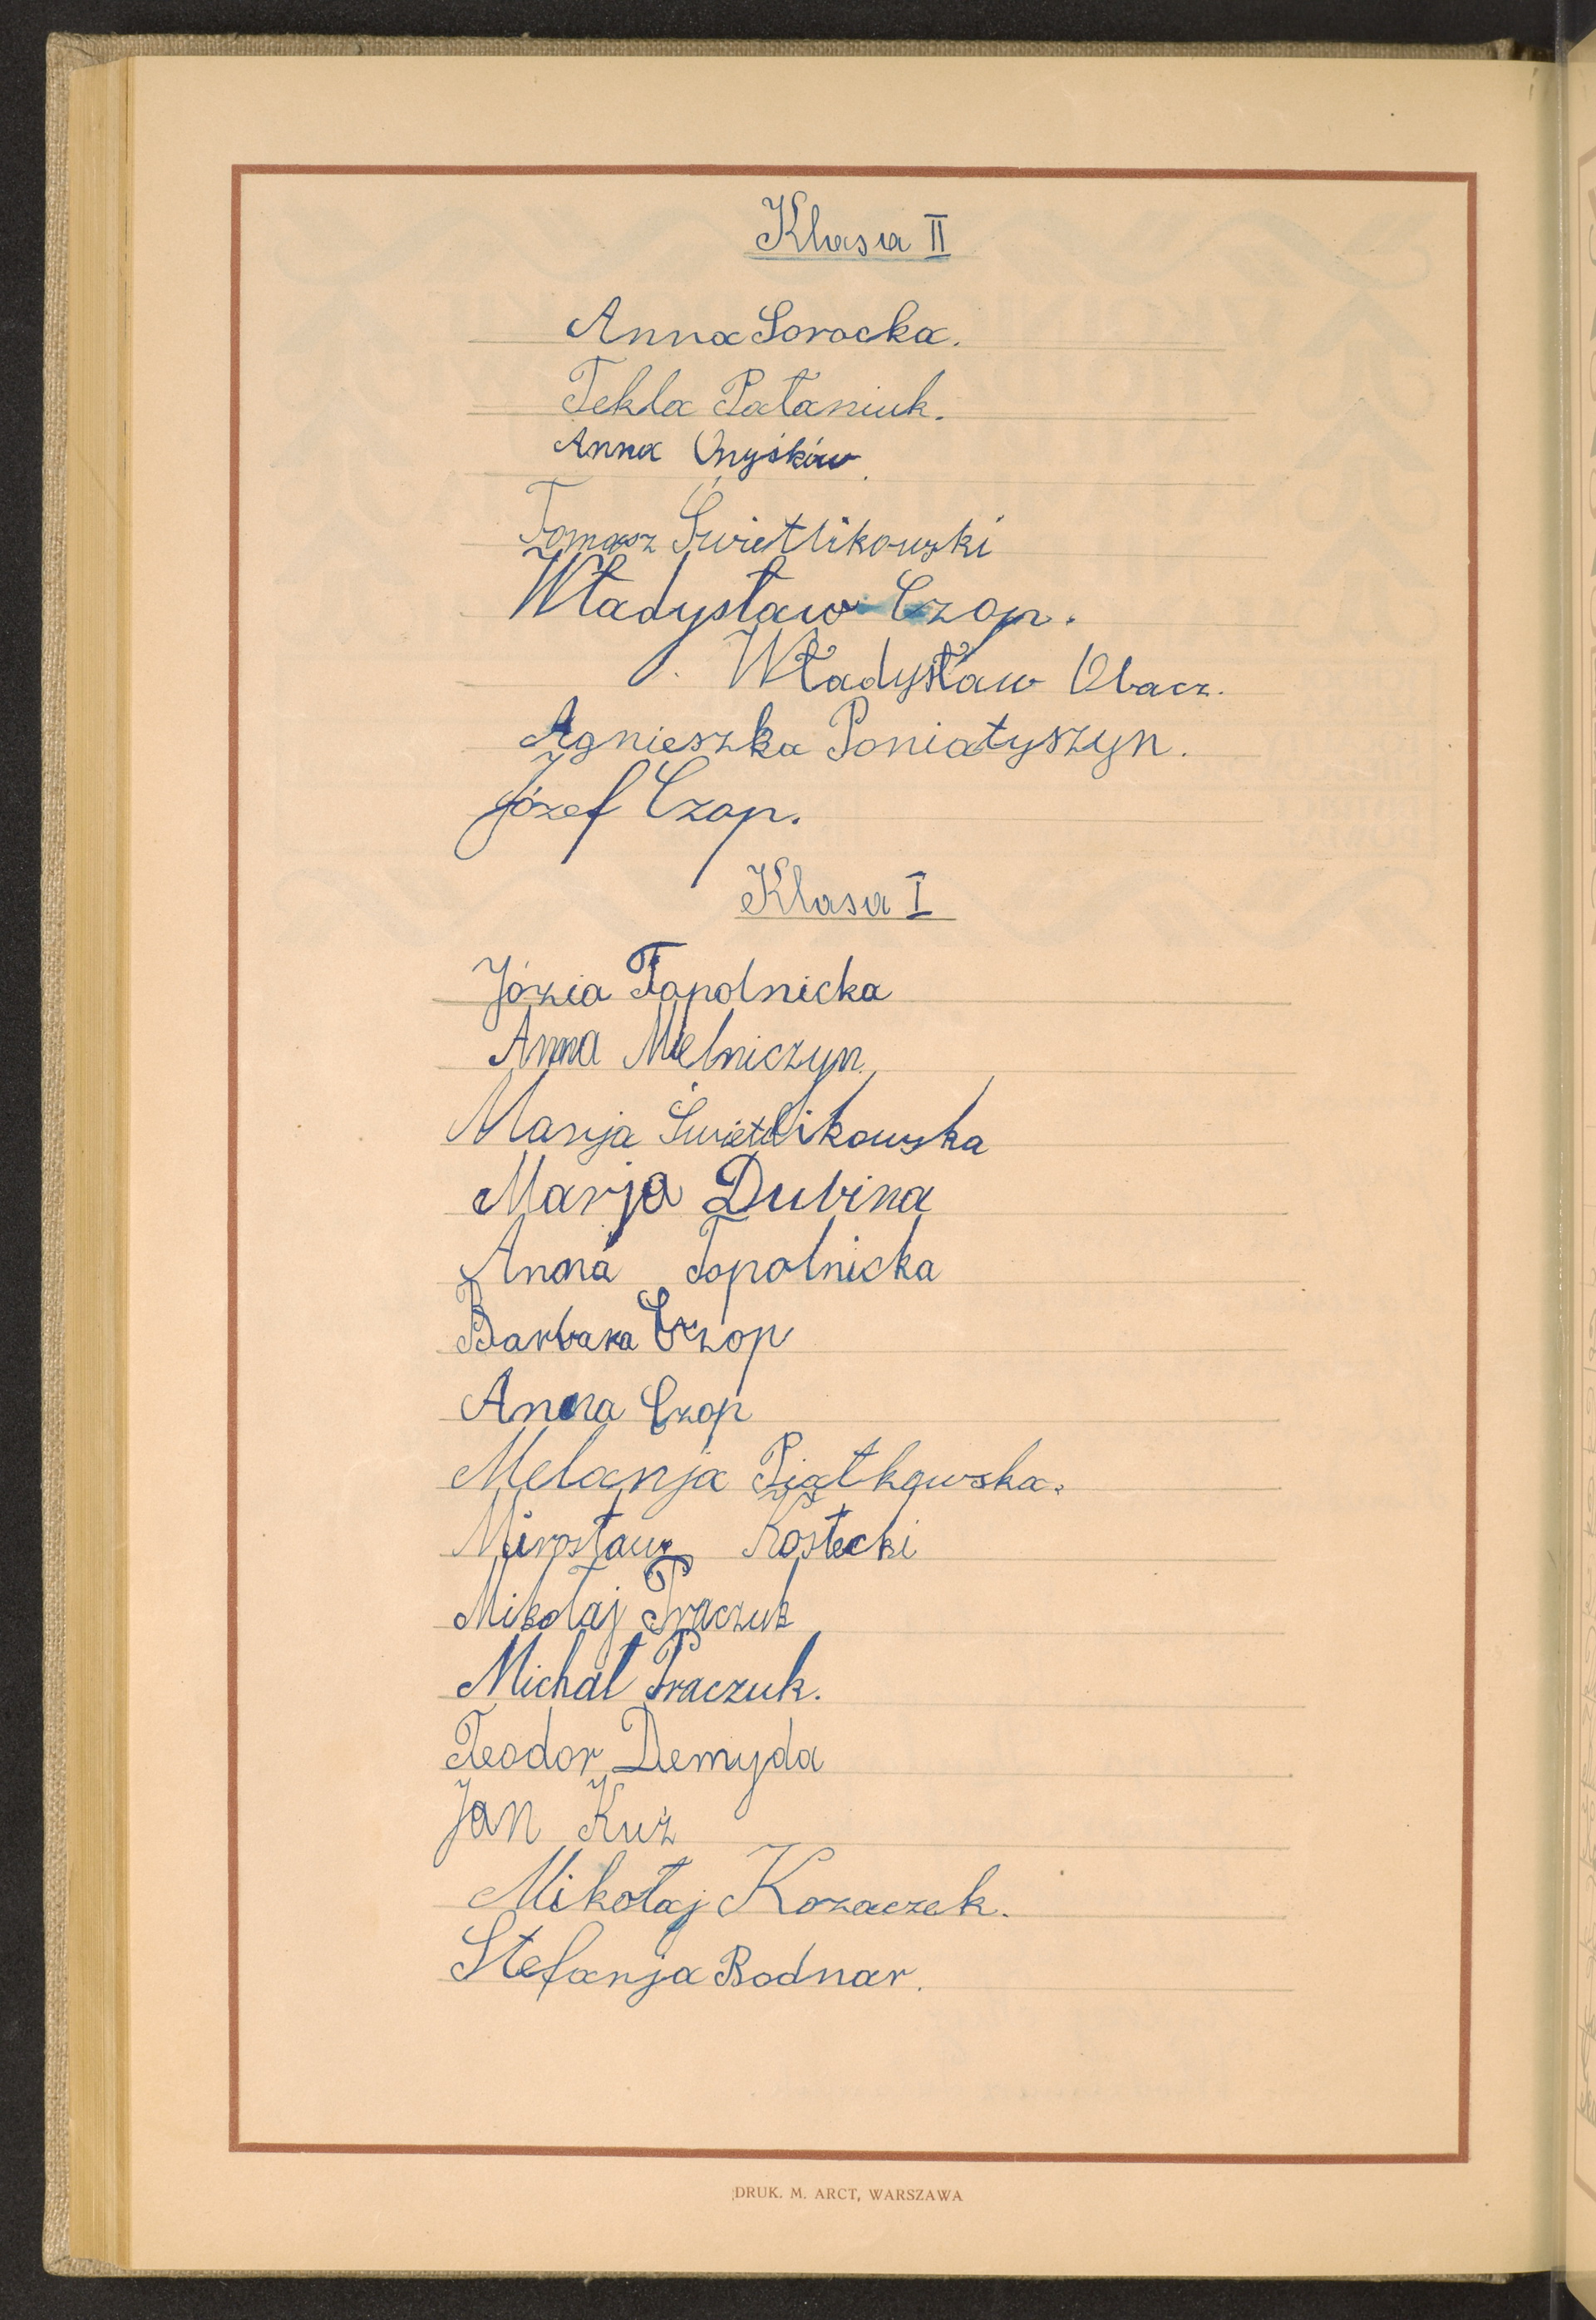 Klasa II
Anna Sorocka.
Tekla Pataniuk.
Anna Onyśków.
Tomasz Świetlikowski
Władysław Czop.
Władysław Obacz.
Agnieszka Poniatyszyn.
Józef Czop.
Klasa I
Józia Topolnicka
Anna Melniczyn.
Marja Świetlikowska
Marja Dubina
Anna Topolnicka
Barbara Czop
Anna Czop
Melanja Piątkowska.
Mirosław Kostecki
Mikołaj Traczuk
Michał Praczuk.
Teodor Demyda
Jan Kuź
Mikołaj Kozaczek.
Stefanja Bodnar.
DRUK. M. ARCT, WARSZAWA